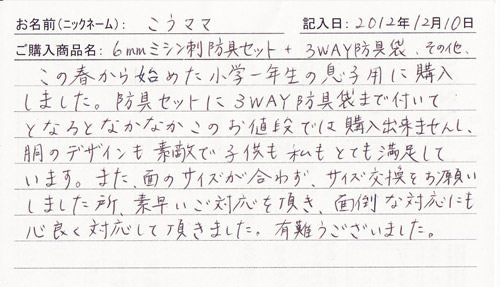 お名前(ニックネーム): こうママ 記入日: 2012年12月10日
ご購入商品名: 6mmミシン刺防具セット + 3WAY防具袋、その他、
この春から始めた小学一年生の息子用に購入
しました。防具セットに3WAY防具袋まで付いて
となるとなかなかこのお値段では購入出来ませんし、
胴のデザインも素敵で子供も私もとても満足して
います。また、面のサイズが合わず、サイズ交換をお願いし
ました所、素早いご対応を頂き、面倒な対応にも
心良く対応して頂きました。有難うございました。